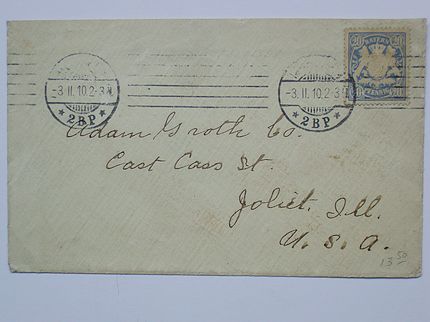 20 BAYERN 20
-3.II.10.2-3N
*2BP*
-3.II.10.2-3
*2BP*
Adam Groth Co.
East Cass St.
Joliet, Ill.
U. S. A.
13 50